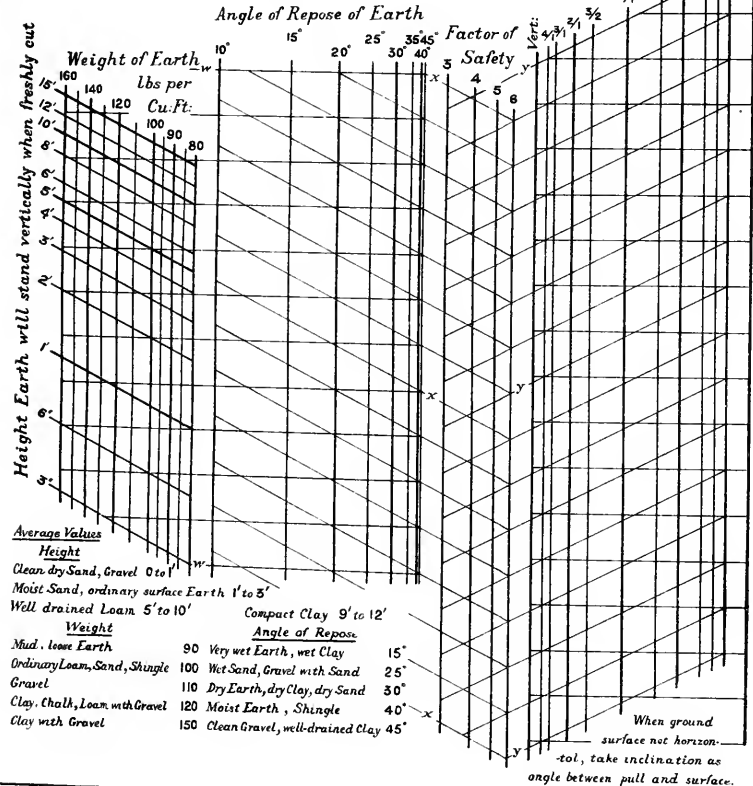 Angle of Repose of Earth
10° 15° 20° 25° 30° 35° 40° 45°
Factor of
Safety
3 4 5 6
Vert:
4/1 3/1 2/1 3/2
Weight of Earth
lbs per
Cu: Ft:
160 140 120 100 90 80
Height Earth will stand vertically when freshly cut
15'
12'
10'
8'
6'
5'
4'
3'
2'
1'
6"
3"
w
w
x
x
x
y
y
y
Average Values
Height
Clean dry Sand, Gravel 0 to 1'
Moist Sand, ordinary surface Earth 1' to 3'
Well drained Loam 5' to 10' Compact Clay 9' to 12'
Weight
Mud, loose Earth 90
Ordinary Loam, Sand, Shingle 100
Gravel 110
Clay, Chalk, Loam with Gravel 120
Clay with Gravel 150
Angle of Repose
Very wet Earth, wet Clay 15°
Wet Sand, Gravel with Sand 25°
Dry Earth, dry Clay, dry Sand 30°
Moist Earth, Shingle 40°
Clean Gravel, well-drained Clay 45°
When ground
surface not horizon-
-tol, take inclination as
angle between pull and surface.